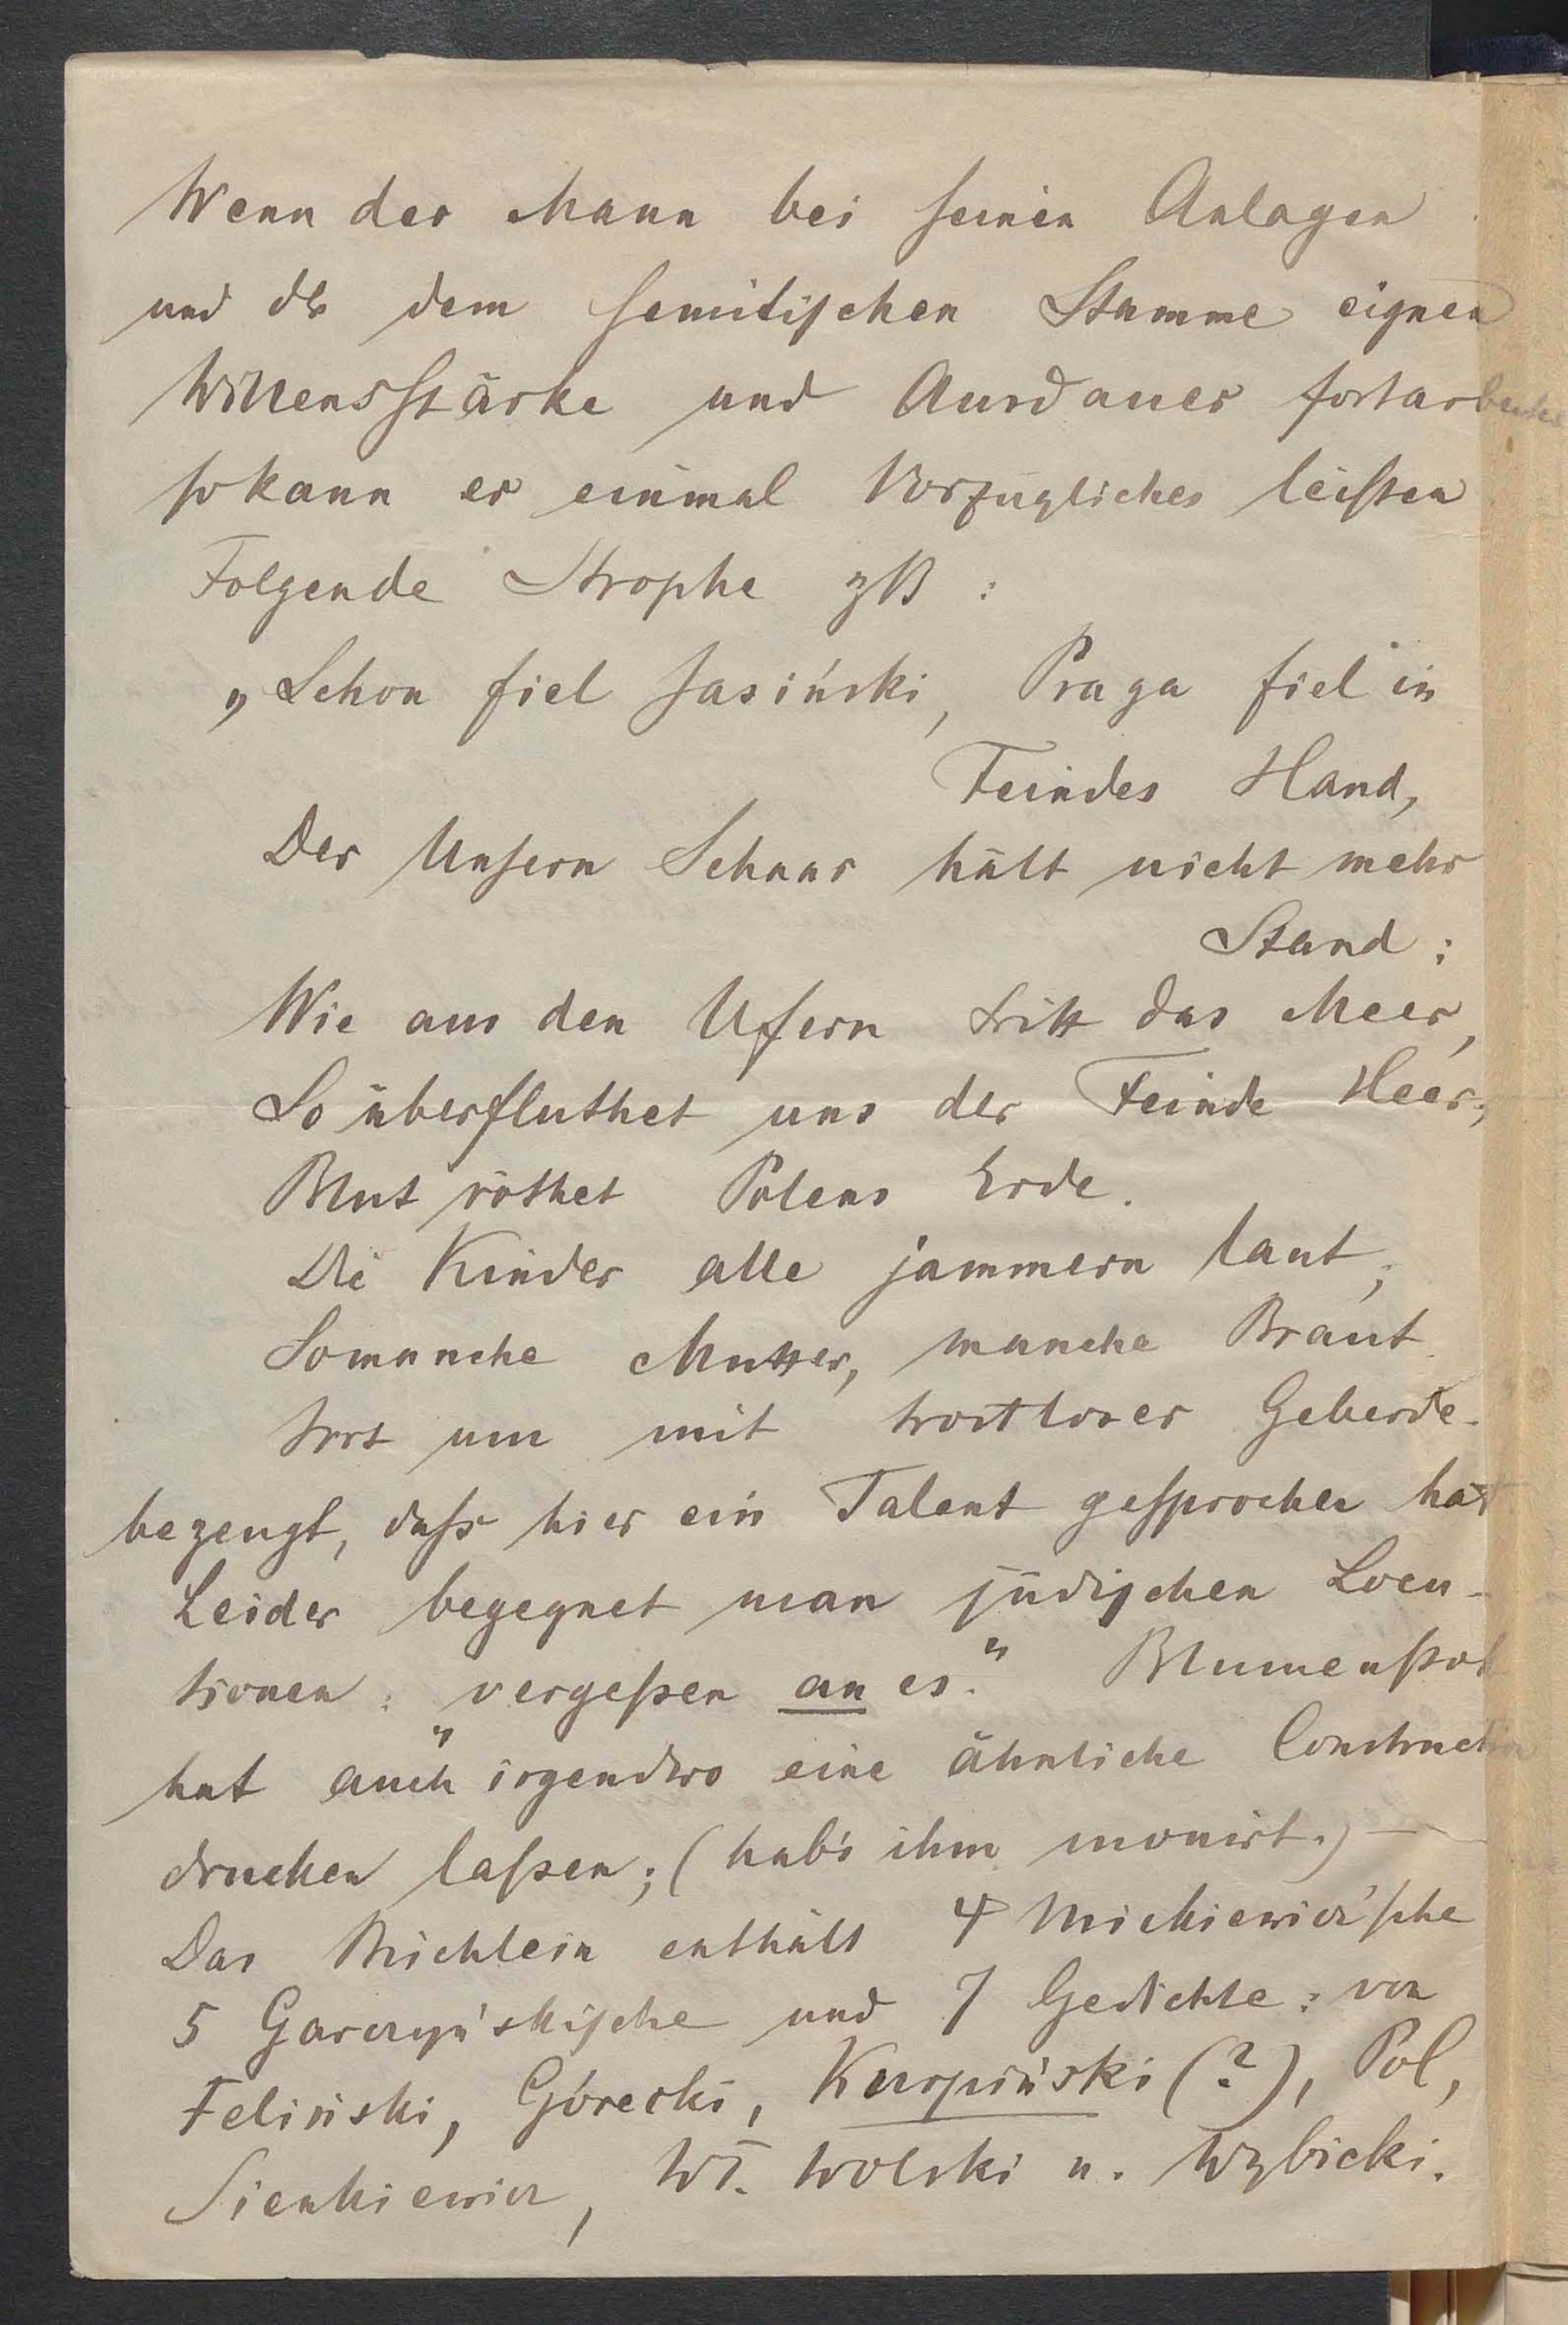 Wenn der Mann bei seinen Anlagen
und der dem semitischen Stamme eignen
Willensstärke und Ausdauer fortarbeitet
so kann er einmal Vorzügliches leisten
Folgende Strophe zB :
„Schon fiel Jasiński, Praga fiel in
Feindes Hand,
Der Unsern Schaar hält nicht mehr
Stand ;
Wie aus den Ufern tritt das Meer,
So überfluthet uns der Feinde Heer;
Blut röthet Polens Erde.
Die Kinder alle jammern laut,
So manche Mutter, manche Braut
Irrt um mit trostloser Geberde.
bezeugt, dass hier ein Talent gesprochen hat
Leider begegnet man jüdischen Locu-
tionen : „vergessen an es." Blumenstok
hat auch irgendwo eine ähnliche Construction
drucken lassen; (hab's ihm monirt.) —
Das Büchlein enthält 4 Mickiewicz'sche
5 Garczyńskische und 7 Gedichte : von
Feliński, Górecki, Kurpiński (?), Pol,
Sienkiewicz, Wł. Wolski u. Wybicki.